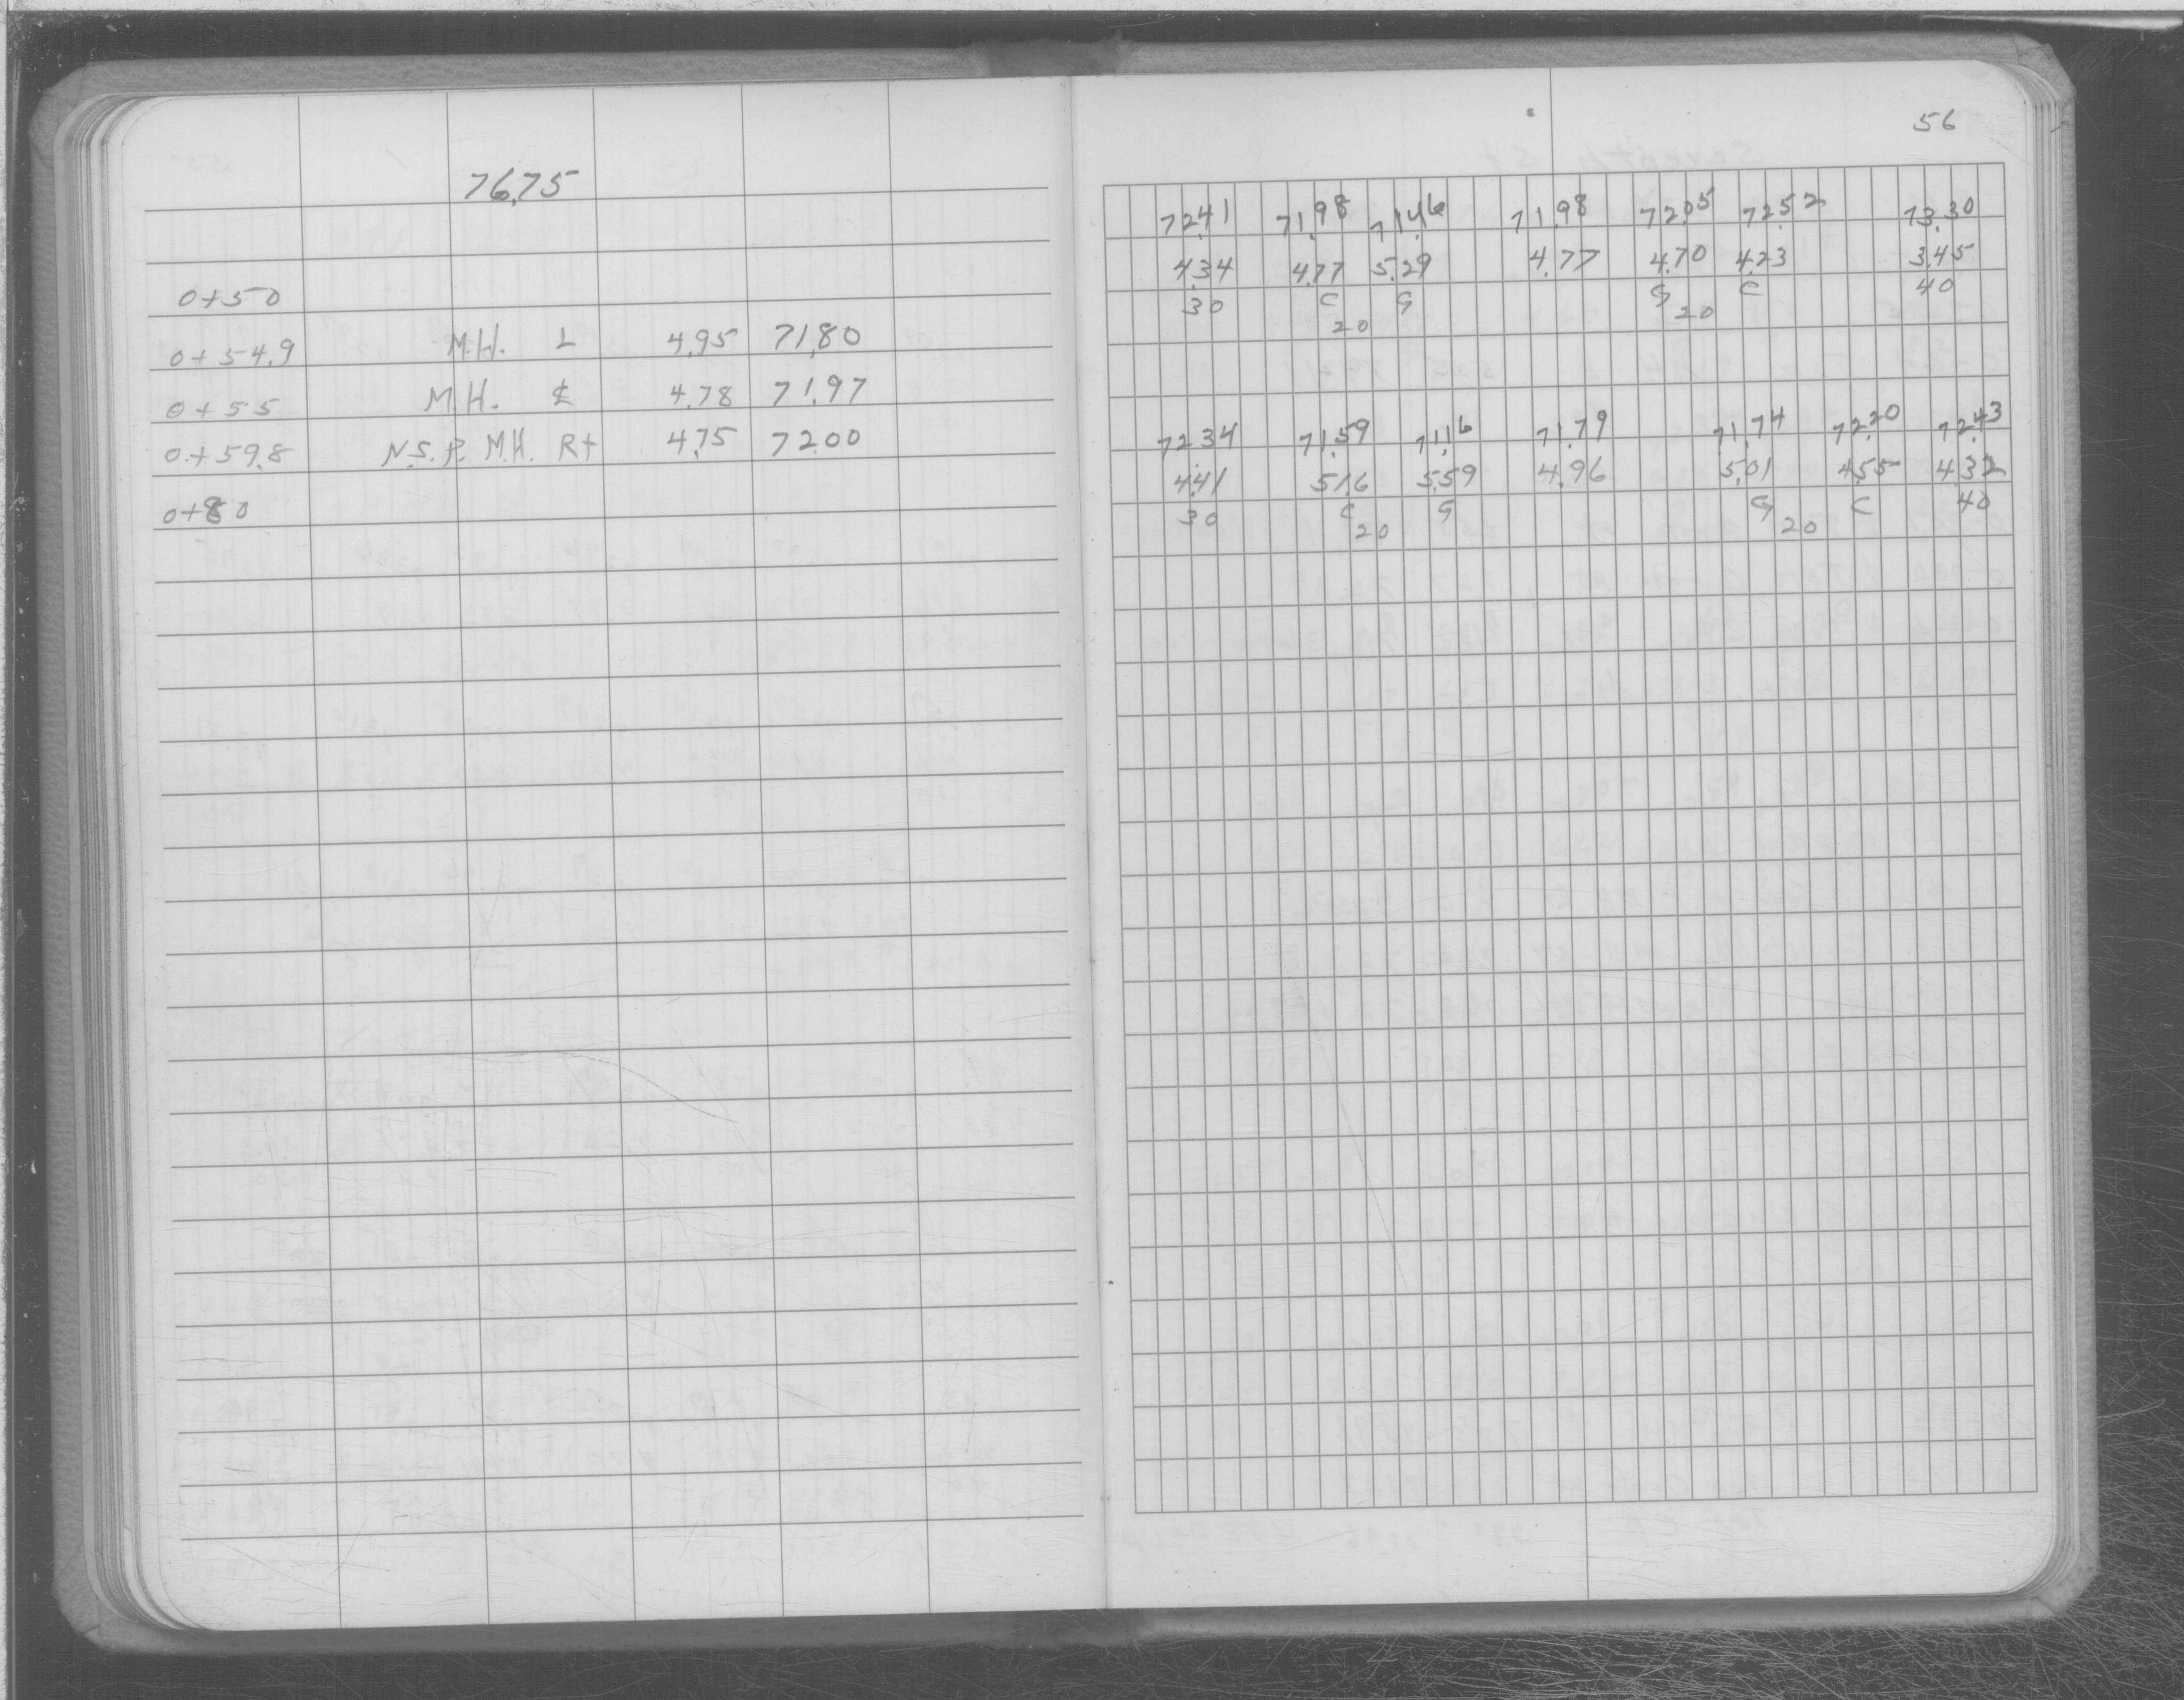 76.75
0+50
0+54.9 M.H. L 4.95 71.80
0+55 M.H. ℄ 4.78 71.97
0+59.8 N.S.P. M.H. Rt 4.75 72.00
0+80
56
72.41 71.98 71.46 71.98 72.05 72.52 73.30
4.34 4.77 5.29 4.77 4.70 4.23 3.45
30 C G G C 40
20 20
72.34 71.59 71.16 71.79 71.74 72.20 72.43
4.41 5.16 5.59 4.96 5.01 4.55 4.32
30 C G G C 40
20 20